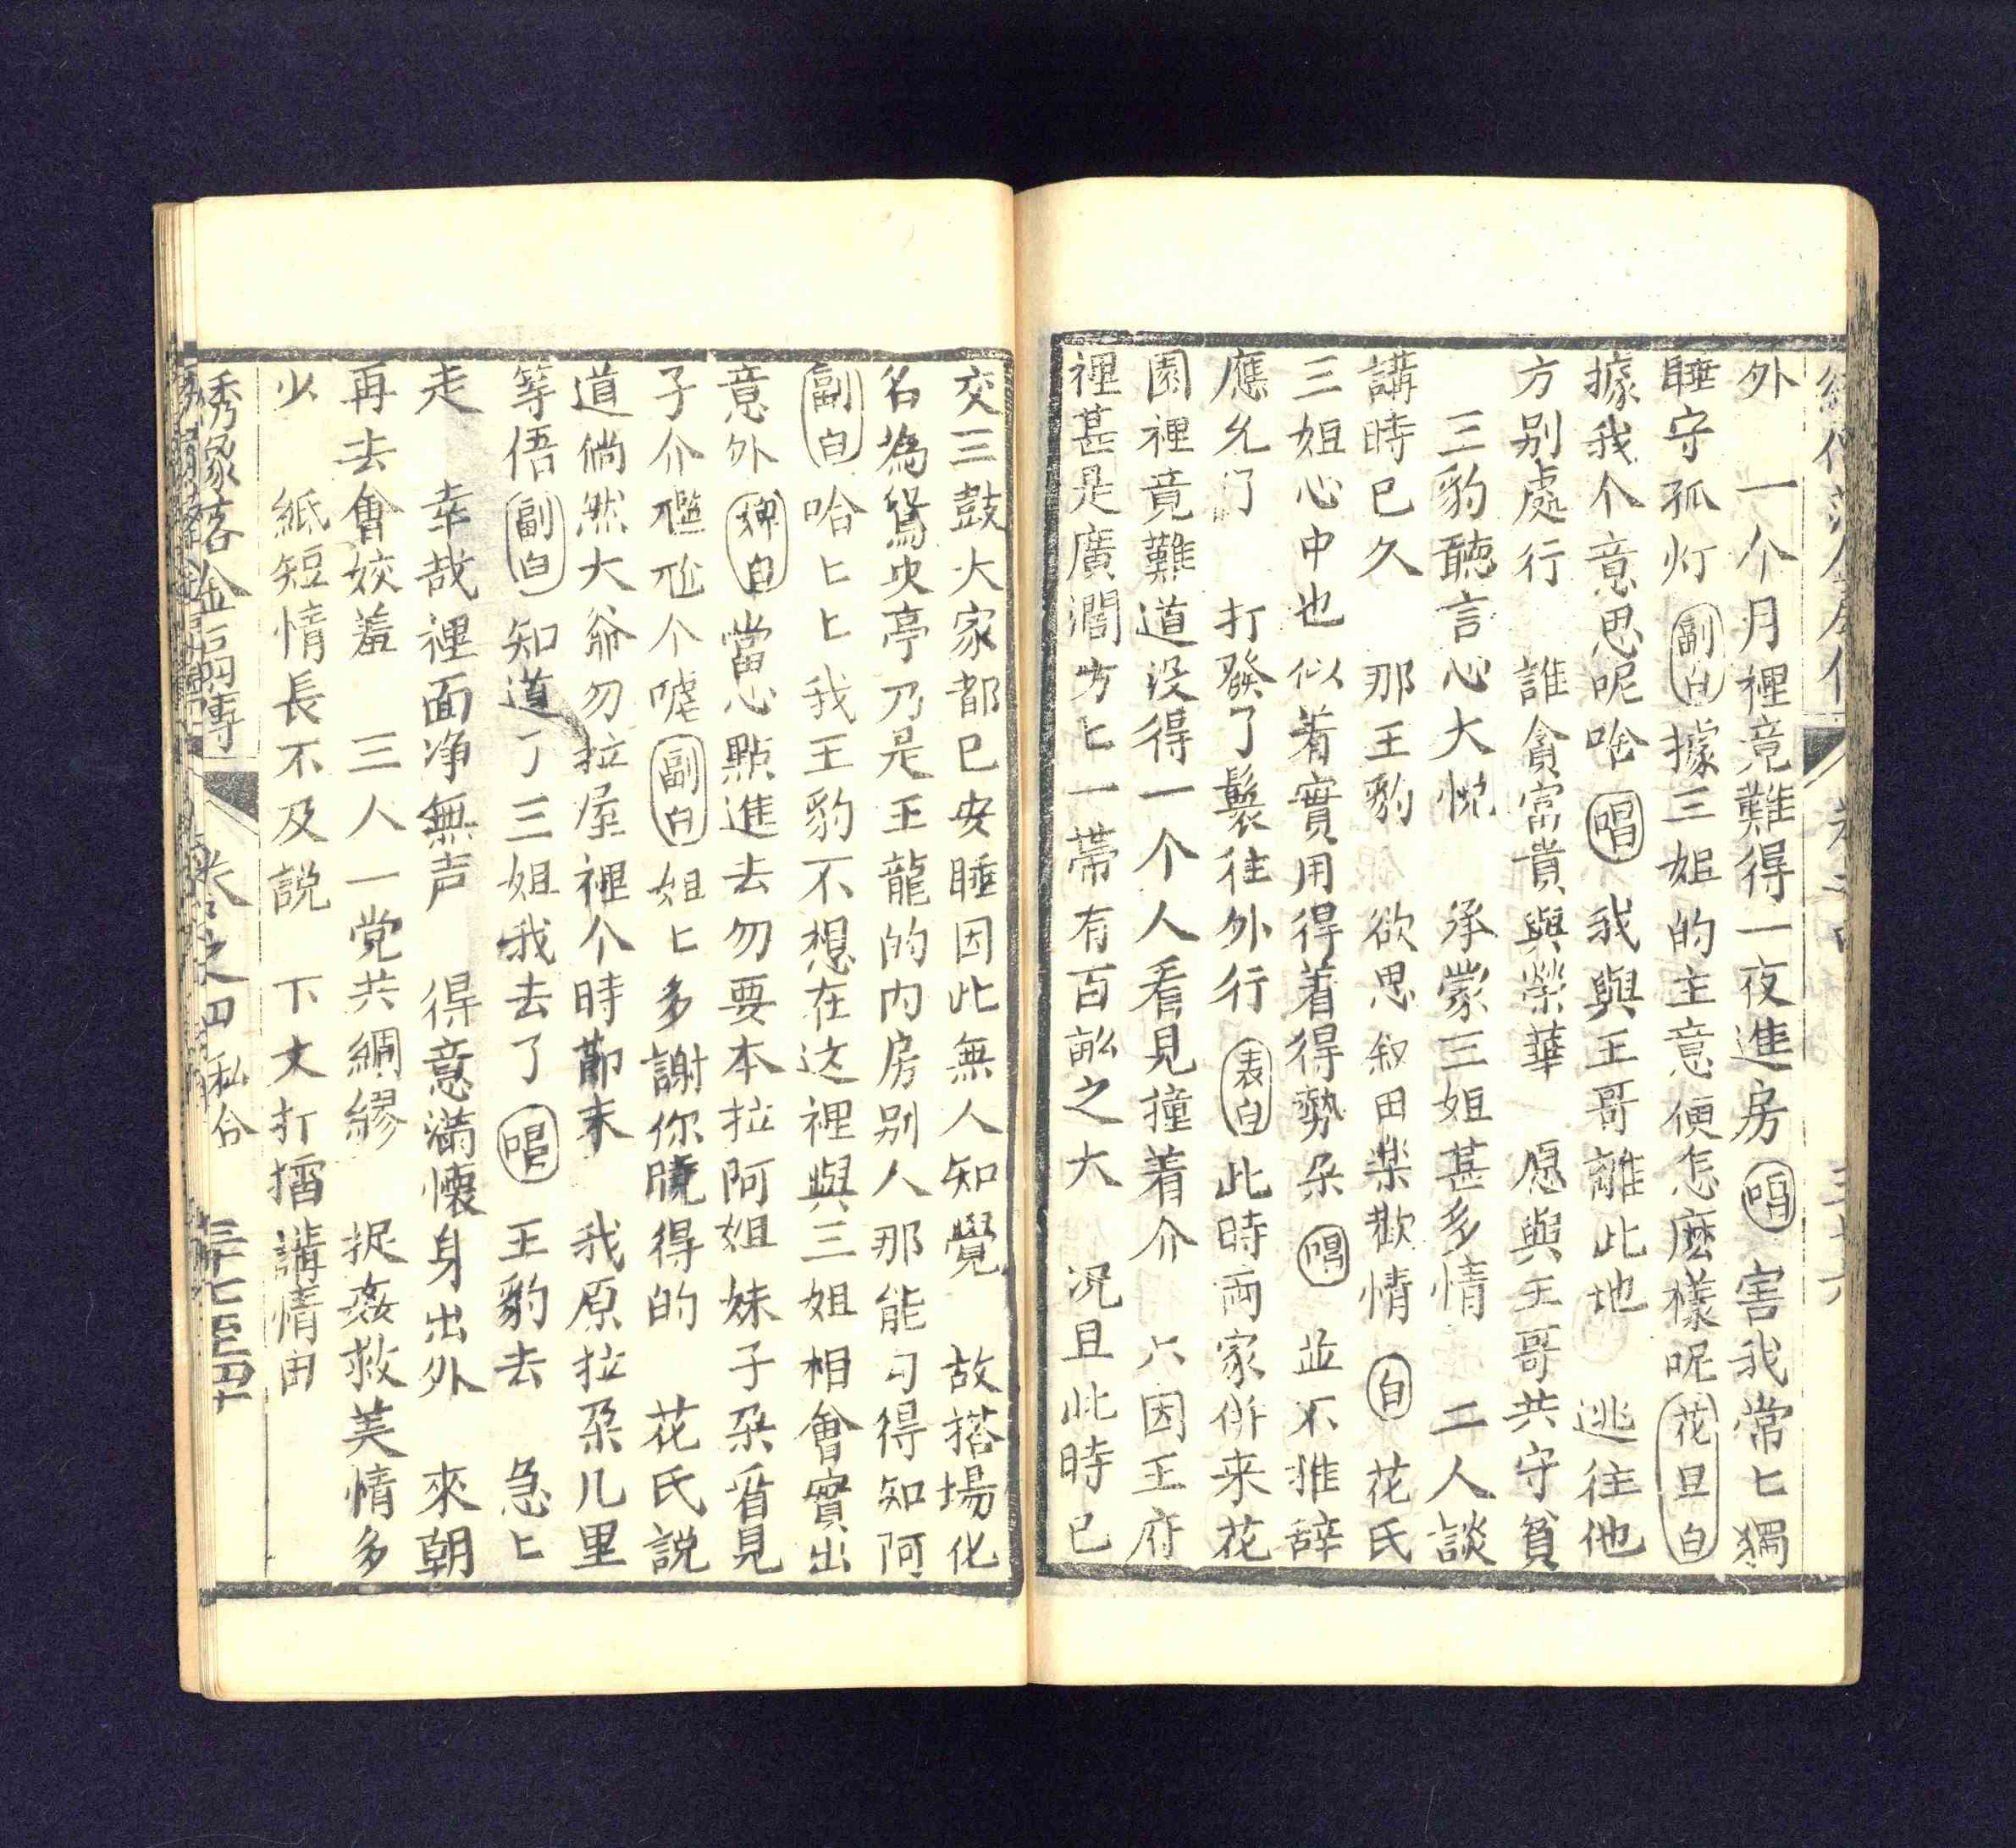 外　一个月裡竟難得一夜進房（唱）害我常匕獨
睡守孤灯（副白）據三姐的主意便怎麼樣呢（花旦白）
據我个意思呢啥（唱）我與王哥離此地　逃往他
方别處行　誰貪富貴與榮華　愿與王哥共守貧
三豹聽言心大悅　承蒙三姐甚多情　二人談
講時已久　那王豹　欲思叙田樂歡情（白）花氏
三姐心中也似着實用得着得勢朵（唱）並不推辞
應允了　打發了鬟往外行（表白）此時両家併来花
園裡竟難道没得一个人看見撞着介　只因王府
裡甚是廣濶方匕一帶有百畝之大　况且此時已
交三鼓大家都已安睡因此無人知覺　故搭場化
名為鴛央亭乃是王龍的内房别人那能勾得知阿
（副白）哈匕匕我王豹不想在这裡與三姐相會實出
意外（婢白）當心點進去勿要本拉阿姐妹子朵看見
子介尷尬个噓（副白）姐匕多謝你曉得的　花氏説
道倘然大爺勿拉屋裡个時莭末　我原拉朶儿里
等㑄（副白）知道了三姐我去了（唱）王豹去　急匕
走　幸哉裡面净無声　得意滿懷身出外　來朝
再去會姣羞　三人一党共綢繆　捉姦救美情多
少　紙短情長不及説　下文打擂講情由
綉像落金扇傳　卷之四　私合　三十七至四十